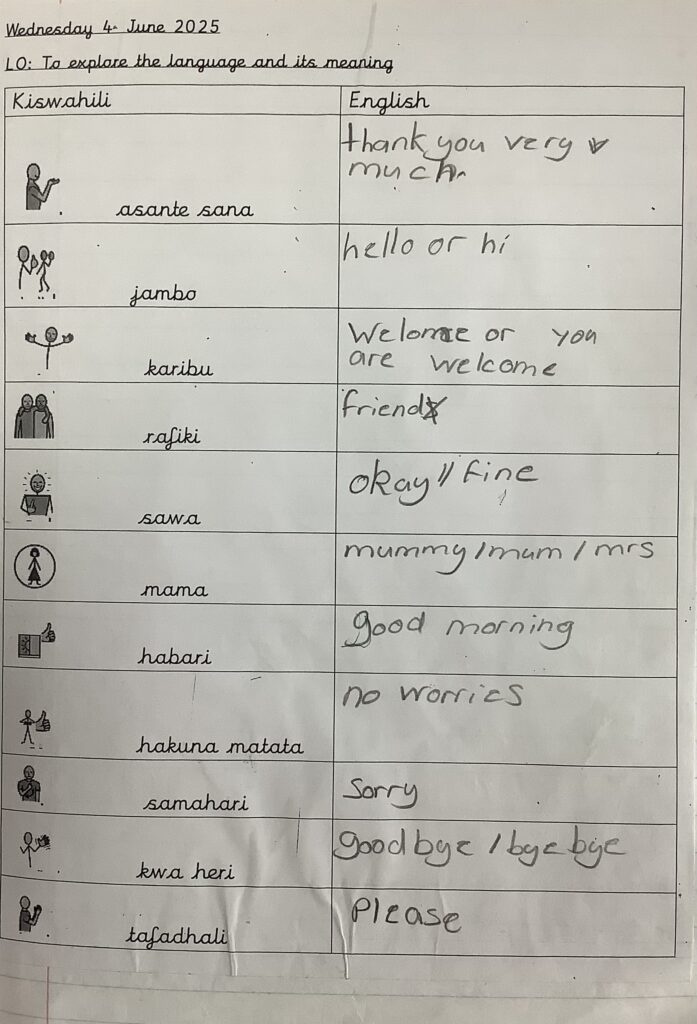 Wednesday 4th June 2025
LO: To explore the language and its meaning
Kiswahili English
thank you very
much
asante sana
hello or hi
jambo
Welomce or you
are welcome
karibu
friend
rafiki
okay// fine
sawa
mummy/mum/mrs
mama
good morning
habari
no worries
hakuna matata
Sorry
samahari
goodbye / bye bye
kwa heri
Please
tafadhali